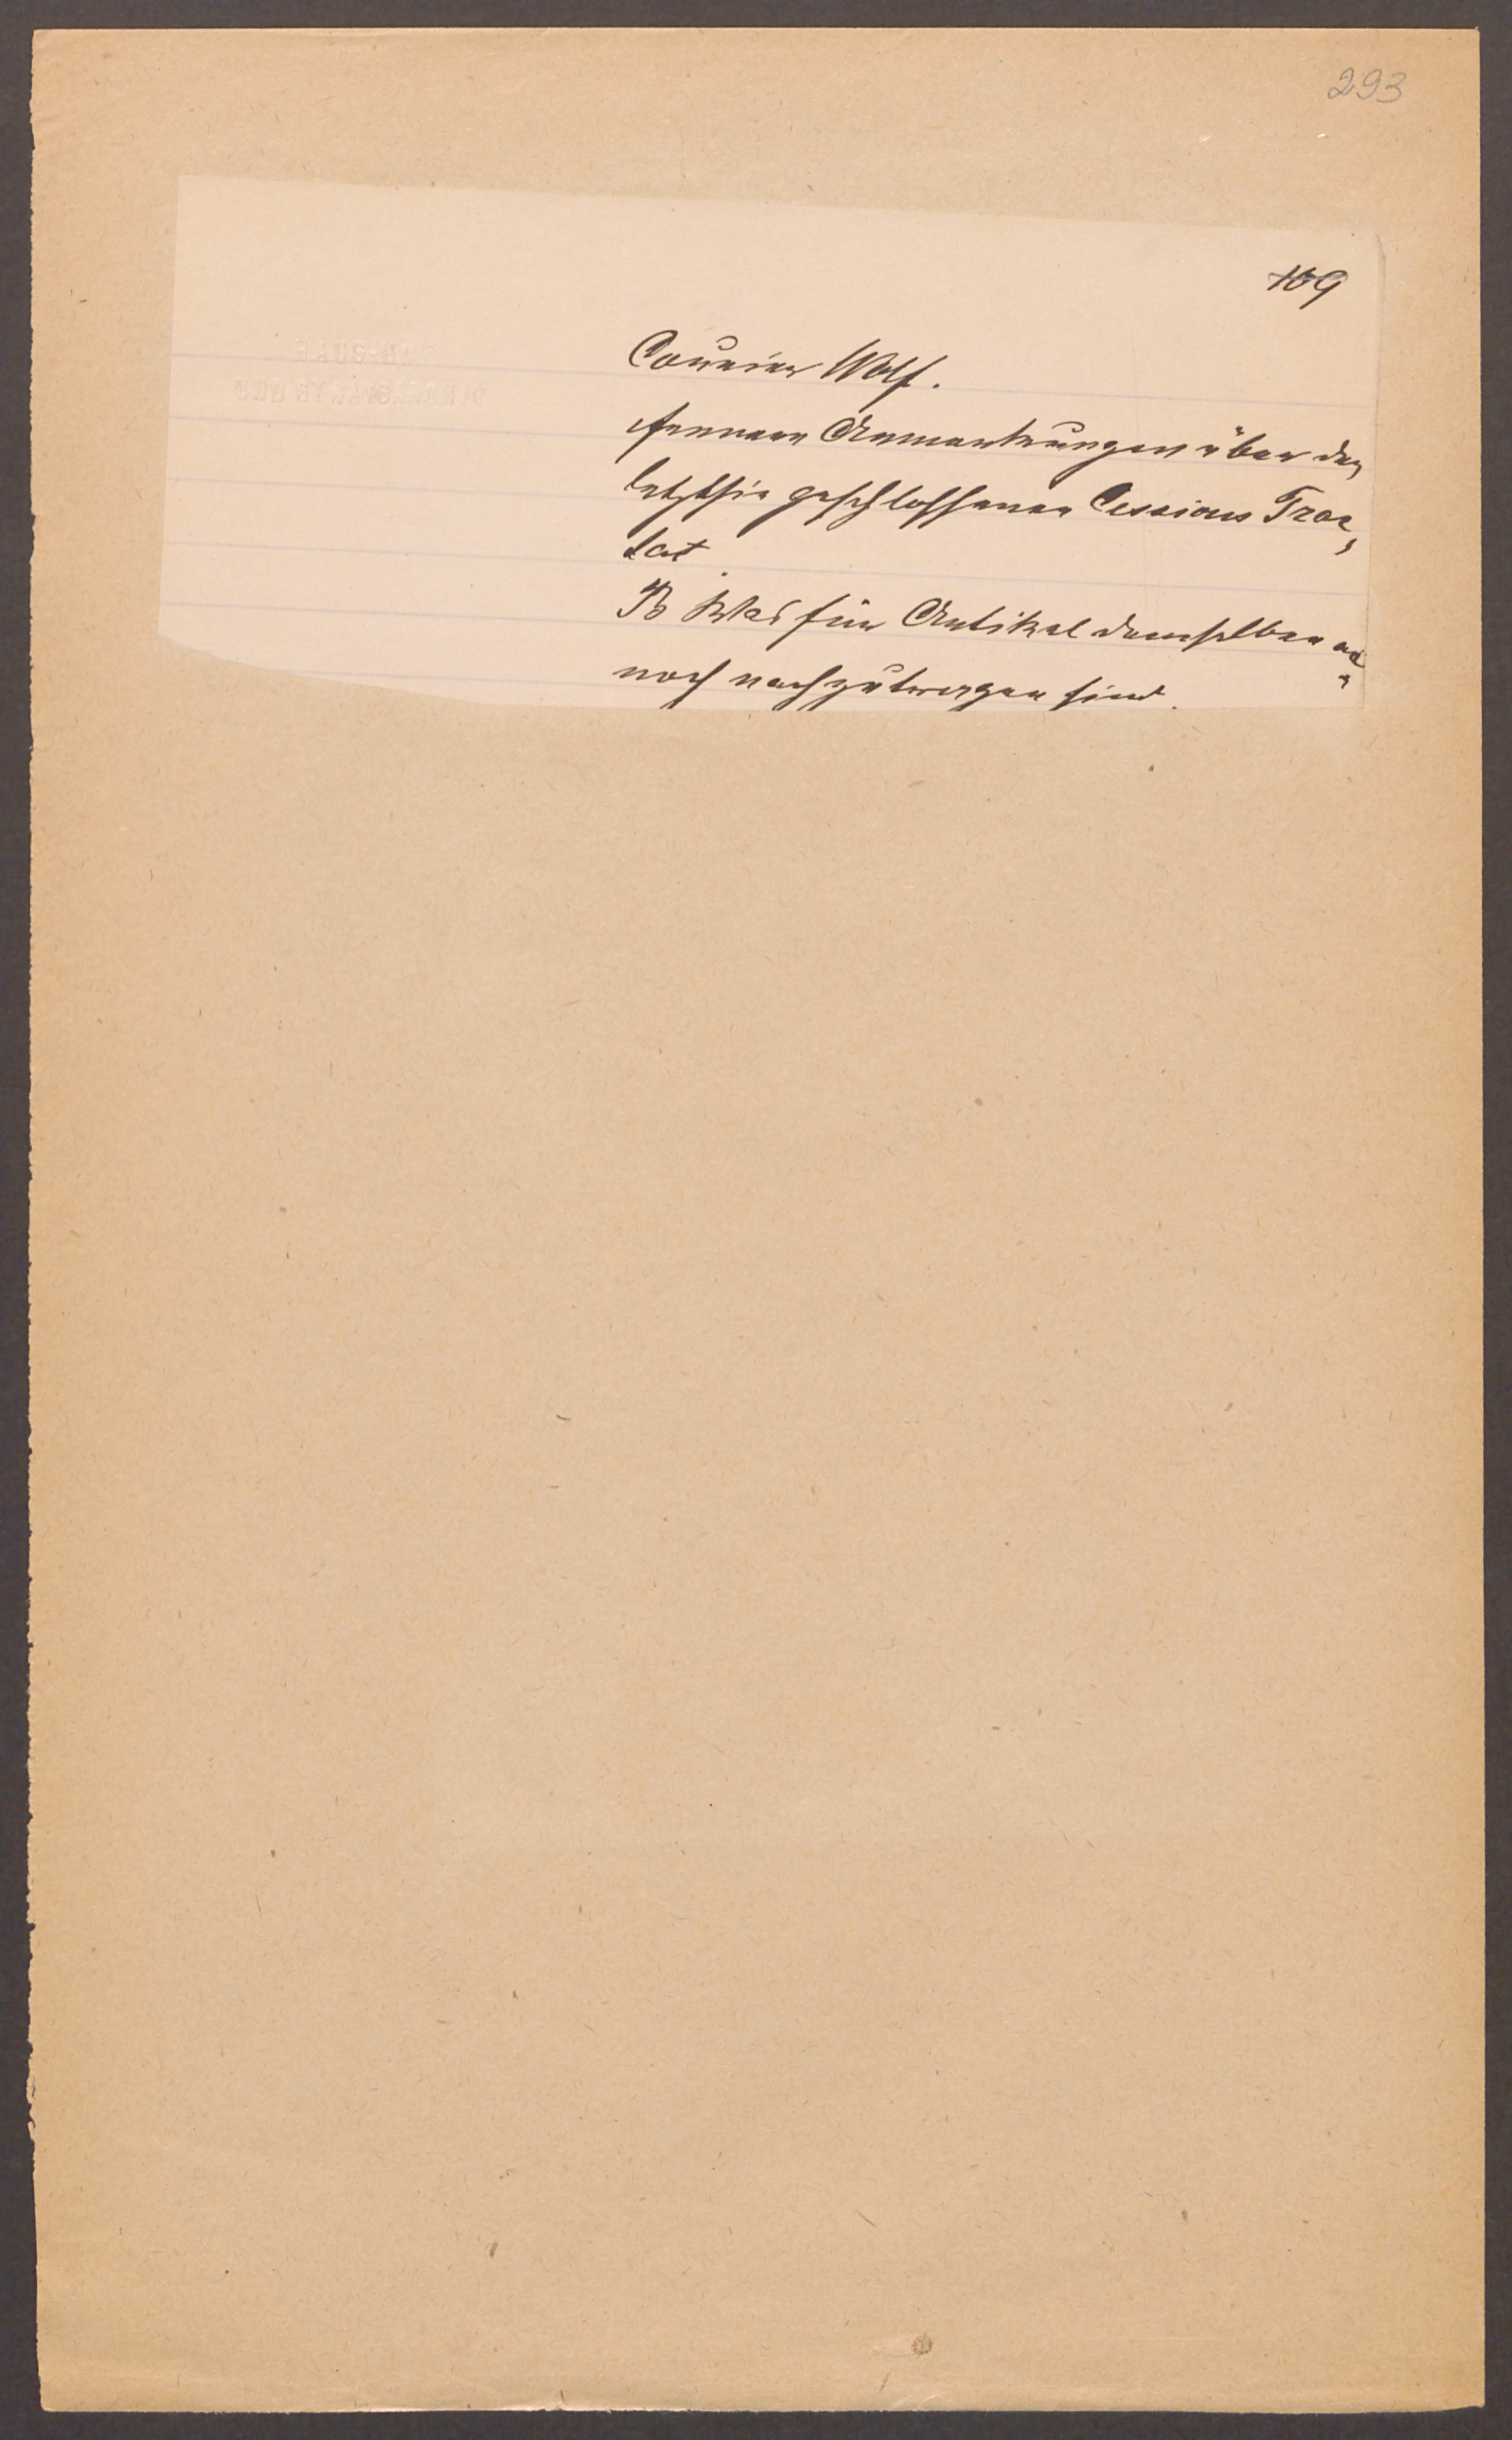 293
109
Courier Wolf.
fernere Anmerkungen über den
letzthin geschlossenen Cessions Trac,
tat
B Was für Artikel demselben an,
noch nachzutragen sind.